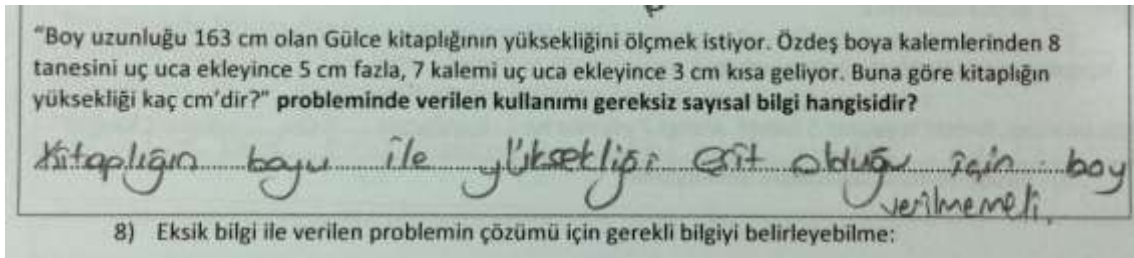 "Boy uzunluğu 163 cm olan Gülce kitaplığının yüksekliğini ölçmek istiyor. Özdeş boya kalemlerinden 8
tanesini uç uca ekleyince 5 cm fazla, 7 kalemi uç uca ekleyince 3 cm kısa geliyor. Buna göre kitaplığın
yüksekliği kaç cm'dir?" probleminde verilen kullanımı gereksiz sayısal bilgi hangisidir?
Kitaplığın boyu ile yüksekliği eşit olduğu için boy
verilmemeli.
8) Eksik bilgi ile verilen problemin çözümü için gerekli bilgiyi belirleyebilme: